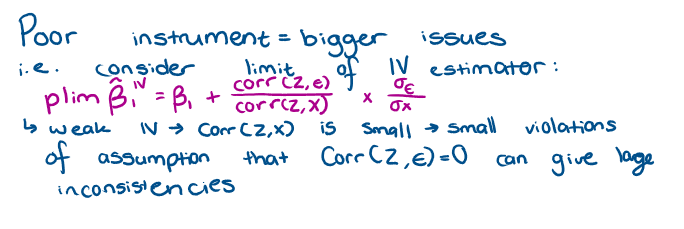 Poor instrument = bigger issues
i.e. consider limit of IV estimator:
plim β̃₁ᴵⱽ = β₁ + corr(Z,ϵ) / corr(Z,X) x σϵ / σx
↳ weak IV → Corr(Z,X) is small → small violations
of assumption that Corr(Z,ϵ)=0 can give lage
inconsistencies